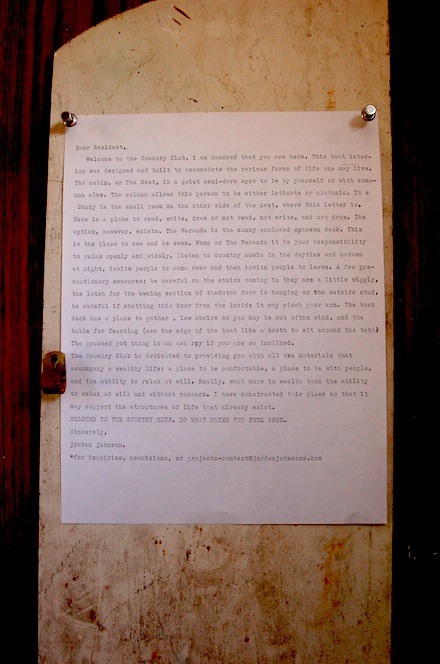 Dear Resident,
Welcome to the Country Club, i am honored that you are here. This boat inter-
ior was designed and built to accomodate the various forms of life one may live.
The cabin, or The Nest, is a quiet semi-dark spot to be by yourself or with some-
one else. The column allows this person to be either intimate or platonic. Th e
Study is the small room on the other side of the nest, where this letter is.
Here is a place to read, write, draw or not read, not write, and not draw. The
option, however, exists. The Veranda is the sunny enclosed spacson deck. This
is the place to see and be seen. When on The Veranda it is your responsibility
to relax openly and widely, listen to country music in the daytime and motown
at night, invite people to come over and then invite people to leave. A few pre-
cautionary measures: be careful on the stairs coming in they are a little wiggly,
the latch for the awning section of thedutch door is hanging on the outside stud,
be careful if shutting this door from the inside it may pinch your arm. The back
deck has a place to gather , low chairs so you may be out ofthe wind, and the
table for feasting (use the edge of the boat like a booth to sit around the table
The crushed pot thing is an ash rpy if you are so inclined.
The Country Club is dedicated to providing you with all the materials that
accompany a wealthy life: a place to be comfortable, a place to be with people,
and the ability to relax at will. Really, what more is wealth than the ability
to relax at will and without concern. I have constructed this place so that it
may support the structures of life that already exist.
WELCOME TO THE COUNTRY CLUB. DO WHAT MAKES YOU FEEL GOOD.
Sincerely,
jordan johnson.
*for inquiries, comnisions, or projects-contact@jordanjohnsons.com